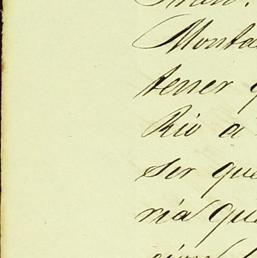 Monta
tener q
Rio a
ser que
ria qu